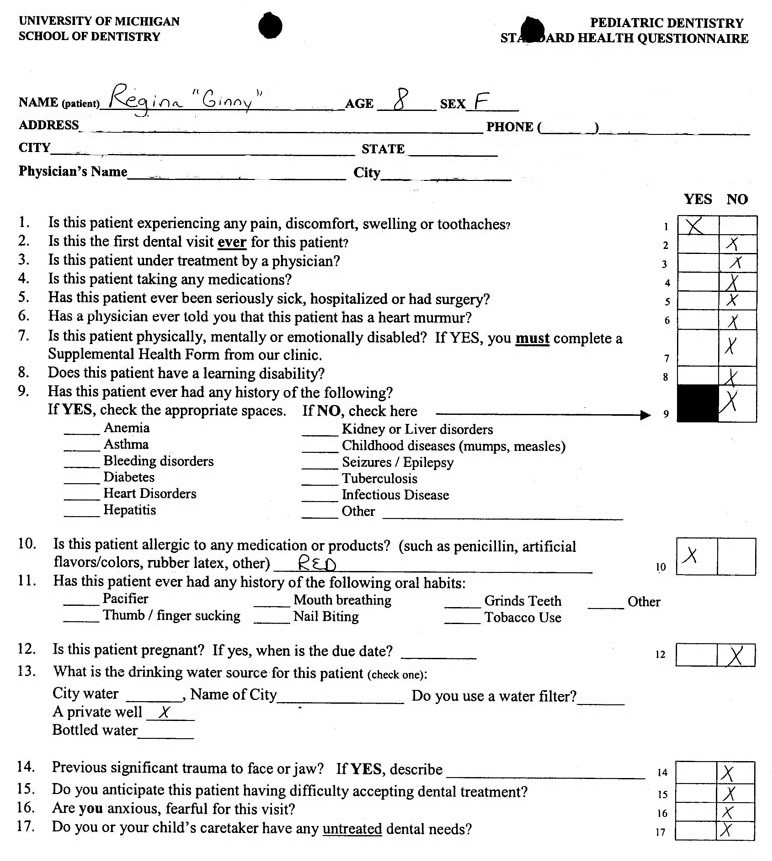 UNIVERSITY OF MICHIGAN
SCHOOL OF DENTISTRY
PEDIATRIC DENTISTRY
STANDARD HEALTH QUESTIONNAIRE
NAME (patient) Regina "Ginny" AGE 8 SEX F
ADDRESS PHONE ( )
CITY STATE
Physician's Name City
YES NO
1. Is this patient experiencing any pain, discomfort, swelling or toothaches? 1 X
2. Is this the first dental visit ever for this patient? 2 X
3. Is this patient under treatment by a physician? 3 X
4. Is this patient taking any medications? 4 X
5. Has this patient ever been seriously sick, hospitalized or had surgery? 5 X
6. Has a physician ever told you that this patient has a heart murmur? 6 X
7. Is this patient physically, mentally or emotionally disabled? If YES, you must complete a
Supplemental Health Form from our clinic. 7 X
8. Does this patient have a learning disability? 8 X
9. Has this patient ever had any history of the following?
If YES, check the appropriate spaces. If NO, check here 9 X
Anemia Kidney or Liver disorders
Asthma Childhood diseases (mumps, measles)
Bleeding disorders Seizures / Epilepsy
Diabetes Tuberculosis
Heart Disorders Infectious Disease
Hepatitis Other
10. Is this patient allergic to any medication or products? (such as penicillin, artificial
flavors/colors, rubber latex, other) RED 10 X
11. Has this patient ever had any history of the following oral habits:
Pacifier Mouth breathing Grinds Teeth Other
Thumb / finger sucking Nail Biting Tobacco Use
12. Is this patient pregnant? If yes, when is the due date? 12 X
13. What is the drinking water source for this patient (check one):
City water , Name of City Do you use a water filter?
A private well X
Bottled water
14. Previous significant trauma to face or jaw? If YES, describe 14 X
15. Do you anticipate this patient having difficulty accepting dental treatment? 15 X
16. Are you anxious, fearful for this visit? 16 X
17. Do you or your child's caretaker have any untreated dental needs? 17 X